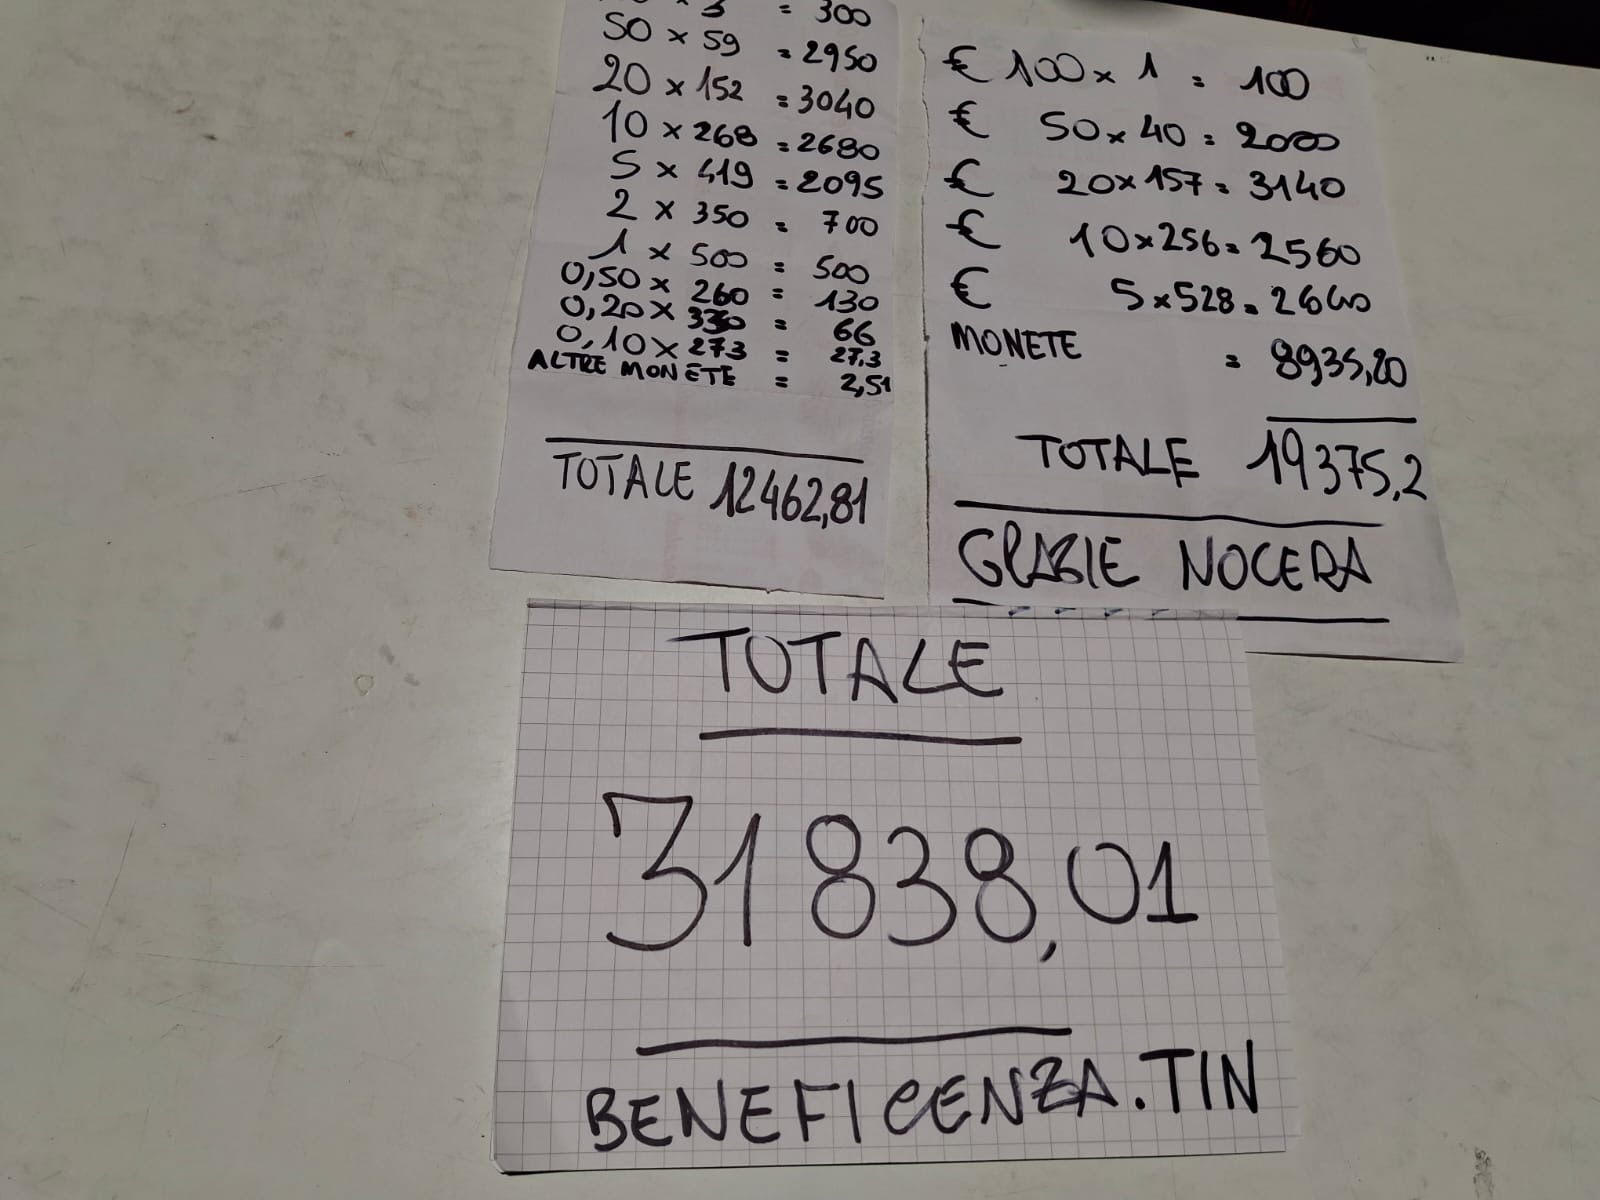 × 3 = 300
50 × 59 = 2950
20 × 152 = 3040
10 × 268 = 2680
5 × 419 = 2095
2 × 350 = 700
1 × 500 = 500
0,50 × 260 = 130
0,20 × 330 = 66
0,10 × 273 = 27,3
ALTRE MONETE = 2,51
TOTALE 12462,81
€ 100 × 1 = 100
€ 50 × 40 = 2000
€ 20 × 157 = 3140
€ 10 × 256 = 2560
€ 5 × 528 = 2640
MONETE = 8935,20
TOTALE 19375,2
GRAZIE NOCERA
TOTALE
31838,01
BENEFICENZA.TIN